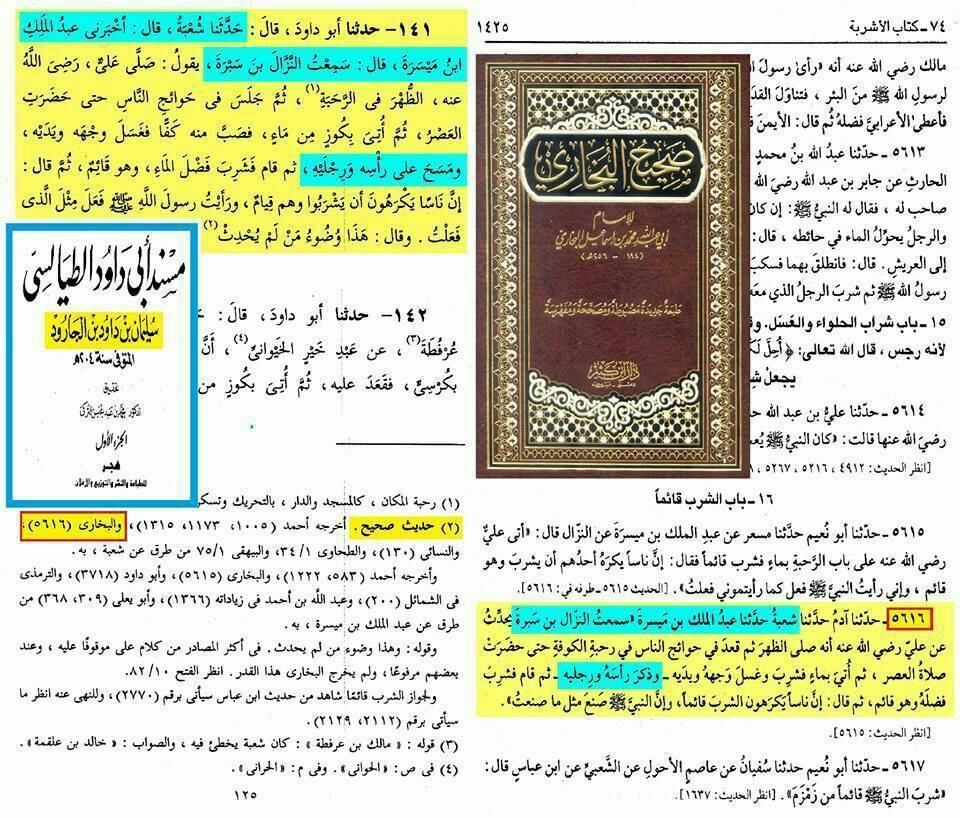 ١٤١- حدثنا أبو داودَ ، قالَ : حَدَّثَنا شُعْبَةُ ، قال : أخْبَرَنى عبدُ المَلِكِ
ابنُ مَيْسَرَةَ ، قال : سَمِعْتُ النَّزَّالَ بنَ سَبْرَةَ ، يقولُ : صَلَّى علىٌّ ، رَضِىَ اللَّهُ
عنه ، الظُّهْرَ فى الرَّحَبَةِ(١) ، ثُمَّ جَلَسَ فى حَوائجِ النَّاسِ حتى حَضَرَتِ
العَصْرُ ، ثُمَّ أُتِىَ بكُوزٍ مِن مَاءٍ ، فصَبَّ منه كَفًّا فغَسَلَ وجْهَه ويَدَيْه ،
ومَسَحَ على رأْسِه ورِجْلَيْهِ ، ثم قام فشَرِبَ فَضْلَ المَاءِ ، وهو قَائِمٌ ، ثُمَّ قال :
إنَّ نَاسًا يَكْرَهُونَ أن يَشْرَبُوا وهم قِيامٌ ، ورَأيْتُ رسولَ اللَّهِ ﷺ فَعَلَ مِثْلَ الَّذى
فَعَلْتُ . وقال : هَذَا وُضُوءُ مَنْ لَمْ يُحْدِثْ(٢)
مسند أبي داود الطيالسى
سليمان بن داود بن الجارود
المتوفى سنة ٢٠٤هـ
تحقيق
الدكتور محمد بن عبد المحسن التركى
الجزء الأول
هجر
للطباعة والنشر والتوزيع والإعلان
١٤٢- حدثنا أبو داودَ ، قالَ :
عُرْفُطَةَ(٣) ، عن عَبْدِ خَيْرٍ الخَيْوانىِّ(٤) ، أنَّ
بكُرْسِىٍّ ، فقَعَدَ عليه ، ثُمَّ أُتِىَ بكُوزٍ من
(١) رحبة المكان ، كالمسجد والدار ، بالتحريك وتسكن
(٢) حديث صحيح . أخرجه أحمد (١٠٠٥، ١١٧٣، ١٣١٥)، والبخارى (٥٦١٦)،
والنسائى (١٣٠)، والطحاوى ٣٤/١، والبيهقى ٧٥/١ من طرق عن شعبة ، به .
وأخرجه أحمد (٥٨٣، ١٢٢٢)، والبخارى (٥٦١٥)، وأبو داود (٣٧١٨)، والترمذى
فى الشمائل (٢٠٠)، وعبد اللَّه بن أحمد فى زياداته (١٣٦٦)، وأبو يعلى (٣٠٩، ٣٦٨) من
طرق عن عبد الملك بن ميسرة ، به .
وقوله : وهذا وضوء من لم يحدث . فى أكثر المصادر من كلام على موقوفًا عليه ، وعند
بعضهم مرفوعًا، ولم يخرج البخارى هذا القدر. انظر الفتح ٨٢/١٠.
ولجواز الشرب قائمًا شاهد من حديث ابن عباس سيأتى برقم (٢٧٧٠)، وللنهى عنه انظر ما
سيأتى برقم (٢١١٢، ٢١٢٩).
(٣) قوله : « مالك بن عرفطة » : كان شعبة يخطئ فيه ، والصواب : « خالد بن علقمة » .
(٤) فى ص : « الحوانى » . وفى م : « الحرانى » .
١٢٥
٧٤ - كتاب الأشربة
١٤٢٥
مالك رضي الله عنه أنه «رأى رسولَ ا
لرسولِ الله ﷺ منَ البئر ، فتناوَلَ القدَ
فأعطى الأعرابيَّ فضلَهُ ثم قال : الأيمنَ
٥٦١٣ - حدَّثنا عبدُ الله بنُ محمدٍ
الحارثِ عن جابر بن عبد الله رضيَ الله
صاحب له ، فقال له النبيُّ ﷺ : إن كان
والرجلُ يحوِّلُ الماءَ في حائطه ، قال :
إلى العريش. قال : فانطلَق بهما فسكب
رسولُ الله ﷺ ثم شربَ الرجلُ الذي معَه
١٥ - باب شراب الحلواء والعَسَل. وقا
لأنه رجس ، قال الله تعالى : ﴿ أُحِلَّ لَكُ
يجعلْ ش
٥٦١٤ - حدَّثنا عليُّ بن عبد الله حد
رضيَ الله عنها قالت : «كان النبيُّ ﷺ يُعج
[انظر الحديث : ٤٩١٢ ، ٥٢١٦ ، ٥٢٦٧ ،
صحيح البخاري
للإمام
أبي عبد الله محمد بن إسماعيل البخاري
(١٩٤ - ٢٥٦هـ)
طبعة جديدة مضبوطة ومصححة ومفهرسة
دار ابن كثير
دمشق - بيروت
١٦ - باب الشرب قائماً
٥٦١٥ - حدَّثنا أبو نُعيم حدَّثنا مسعر عن عبدِ الملك بن ميسرَةَ عن النزّال قال: «أتى عليٌّ
رضي الله عنه على بابِ الرَّحبةِ بماء فشرب قائماً فقال: إنَّ ناساً يَكرَهُ أحدُهم أن يشربَ وهو
قائم ، وإني رأيتُ النبيَّ ﷺ فعلَ كما رأيتموني فعلتُ». [الحديث ٥٦١٥ - طرفه في: ٥٦١٦].
٥٦١٦ - حدَّثنا آدمُ حدَّثنا شعبةُ حدَّثنا عبدُ الملك بنِ مَيسرةَ «سمعتُ النزّال بن سَبرةَ يحدِّثُ
عن عليّ رضي الله عنه أنه صلى الظهرَ ثم قعدَ في حوائج الناس في رحبةِ الكوفةِ حتى حضرَتْ
صلاةُ العصر ، ثم أُتيَ بماءٍ فشربَ وغَسلَ وجههُ ويدَيه - وذكرَ رأسَهُ ورجليه - ثم قام فشربَ
فضلَهُ وهو قائم ، ثم قال : إنَّ ناساً يَكرَهون الشربَ قائماً، وإنَّ النبيَّ ﷺ صَنَعَ مثلَ ما صنعتُ».
[انظر الحديث: ٥٦١٥].
٥٦١٧ - حدَّثنا أبو نُعيم حدثنا سُفيانُ عن عاصمٍ الأحولِ عن الشَّعبيِّ عن ابنِ عباسٍ قال :
«شربَ النبيُّ ﷺ قائماً من زَمْزَمَ». [انظر الحديث: ١٦٣٧].